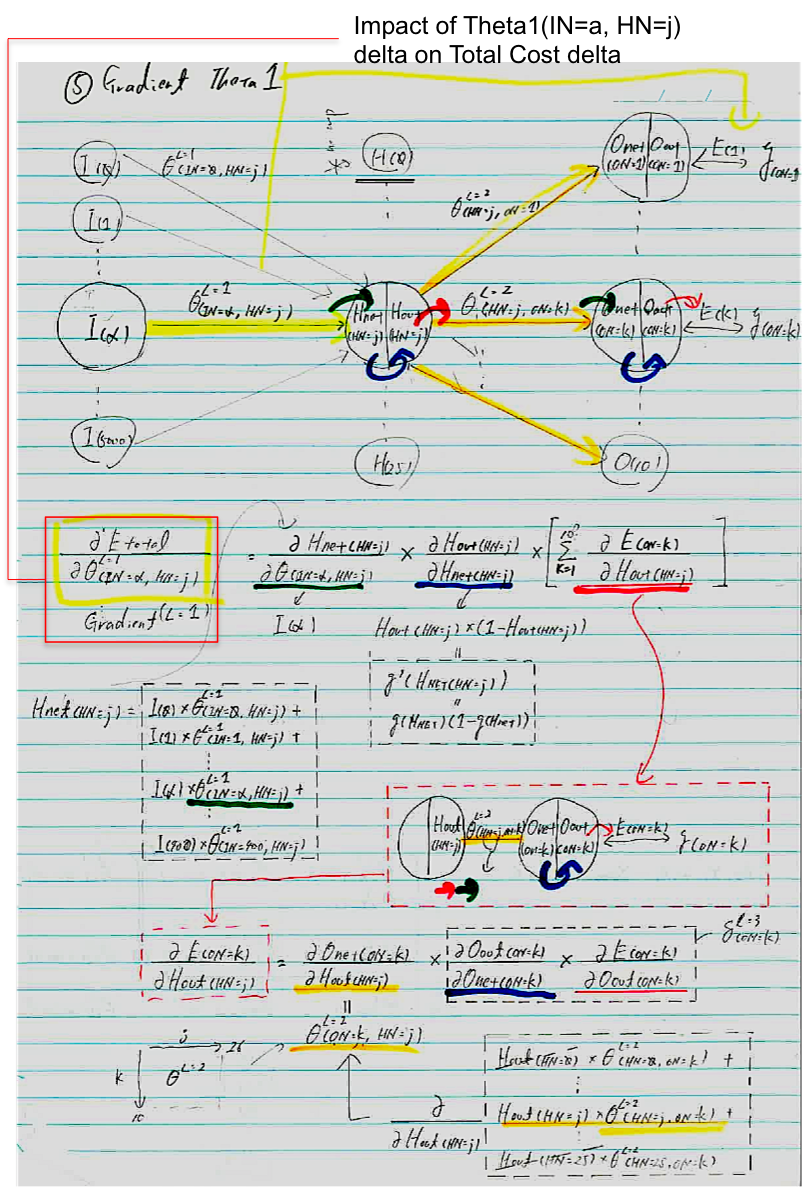 Impact of Theta1(IN=a, HN=j)
delta on Total Cost delta
⑤ Gradient Theta 1
I(0) θ^{L=1}(IN=0, HN=j) H(0)
I(1)
I(α) θ^{L=1}(IN=α, HN=j)
Hnet (HN=j) Hout (HN=j)
θ^{L=2}(HN=j, ON=1)
Onet (ON=1) Oout (ON=1) E(1) y(ON=1)
θ^{L=2}(HN=j, ON=k)
Onet (ON=k) Oout (ON=k) E(k) y(ON=k)
H(25) O(10)
∂Etotal / ∂θ^{L=1}(IN=α, HN=j) = ∂Hnet(HN=j) / ∂θ(IN=α, HN=j) × ∂Hout(HN=j) / ∂Hnet(HN=j) × [ Σ K=1 ∂E(ON=k) / ∂Hout(HN=j) ]
Gradient(L=1) I(α) Hout(HN=j)×(1-Hout(HN=j))
=
g'(HNET(HN=j))
=
g(HNET)(1-g(Hnet))
Hnet(HN=j) =
I(0)×θ^{L=1}(IN=0, HN=j) +
I(1)×θ^{L=1}(IN=1, HN=j) +
I(α)×θ^{L=1}(IN=α, HN=j) +
I(400)×θ^{L=1}(IN=400, HN=j)
Hout (HN=j) θ^{L=2}(HN=j, ON=k) Onet (ON=k) Oout (ON=k) E(ON=k) y(ON=k)
δ^{L=3}(ON=k)
∂E(ON=k) / ∂Hout(HN=j) = ∂Onet(ON=k) / ∂Hout(HN=j) × ∂Oout(ON=k) / ∂Onet(ON=k) × ∂E(ON=k) / ∂Oout(ON=k)
=
j 26 θ^{L=2}(ON=k, HN=j)
k θ^{L=2}
10
∂ / ∂Hout(HN=j)
Hout(HN=0) × θ^{L=2}(HN=0, ON=k) +
Hout(HN=j) × θ^{L=2}(HN=j, ON=k) +
Hout(HN=25) × θ^{L=2}(HN=25, ON=k)